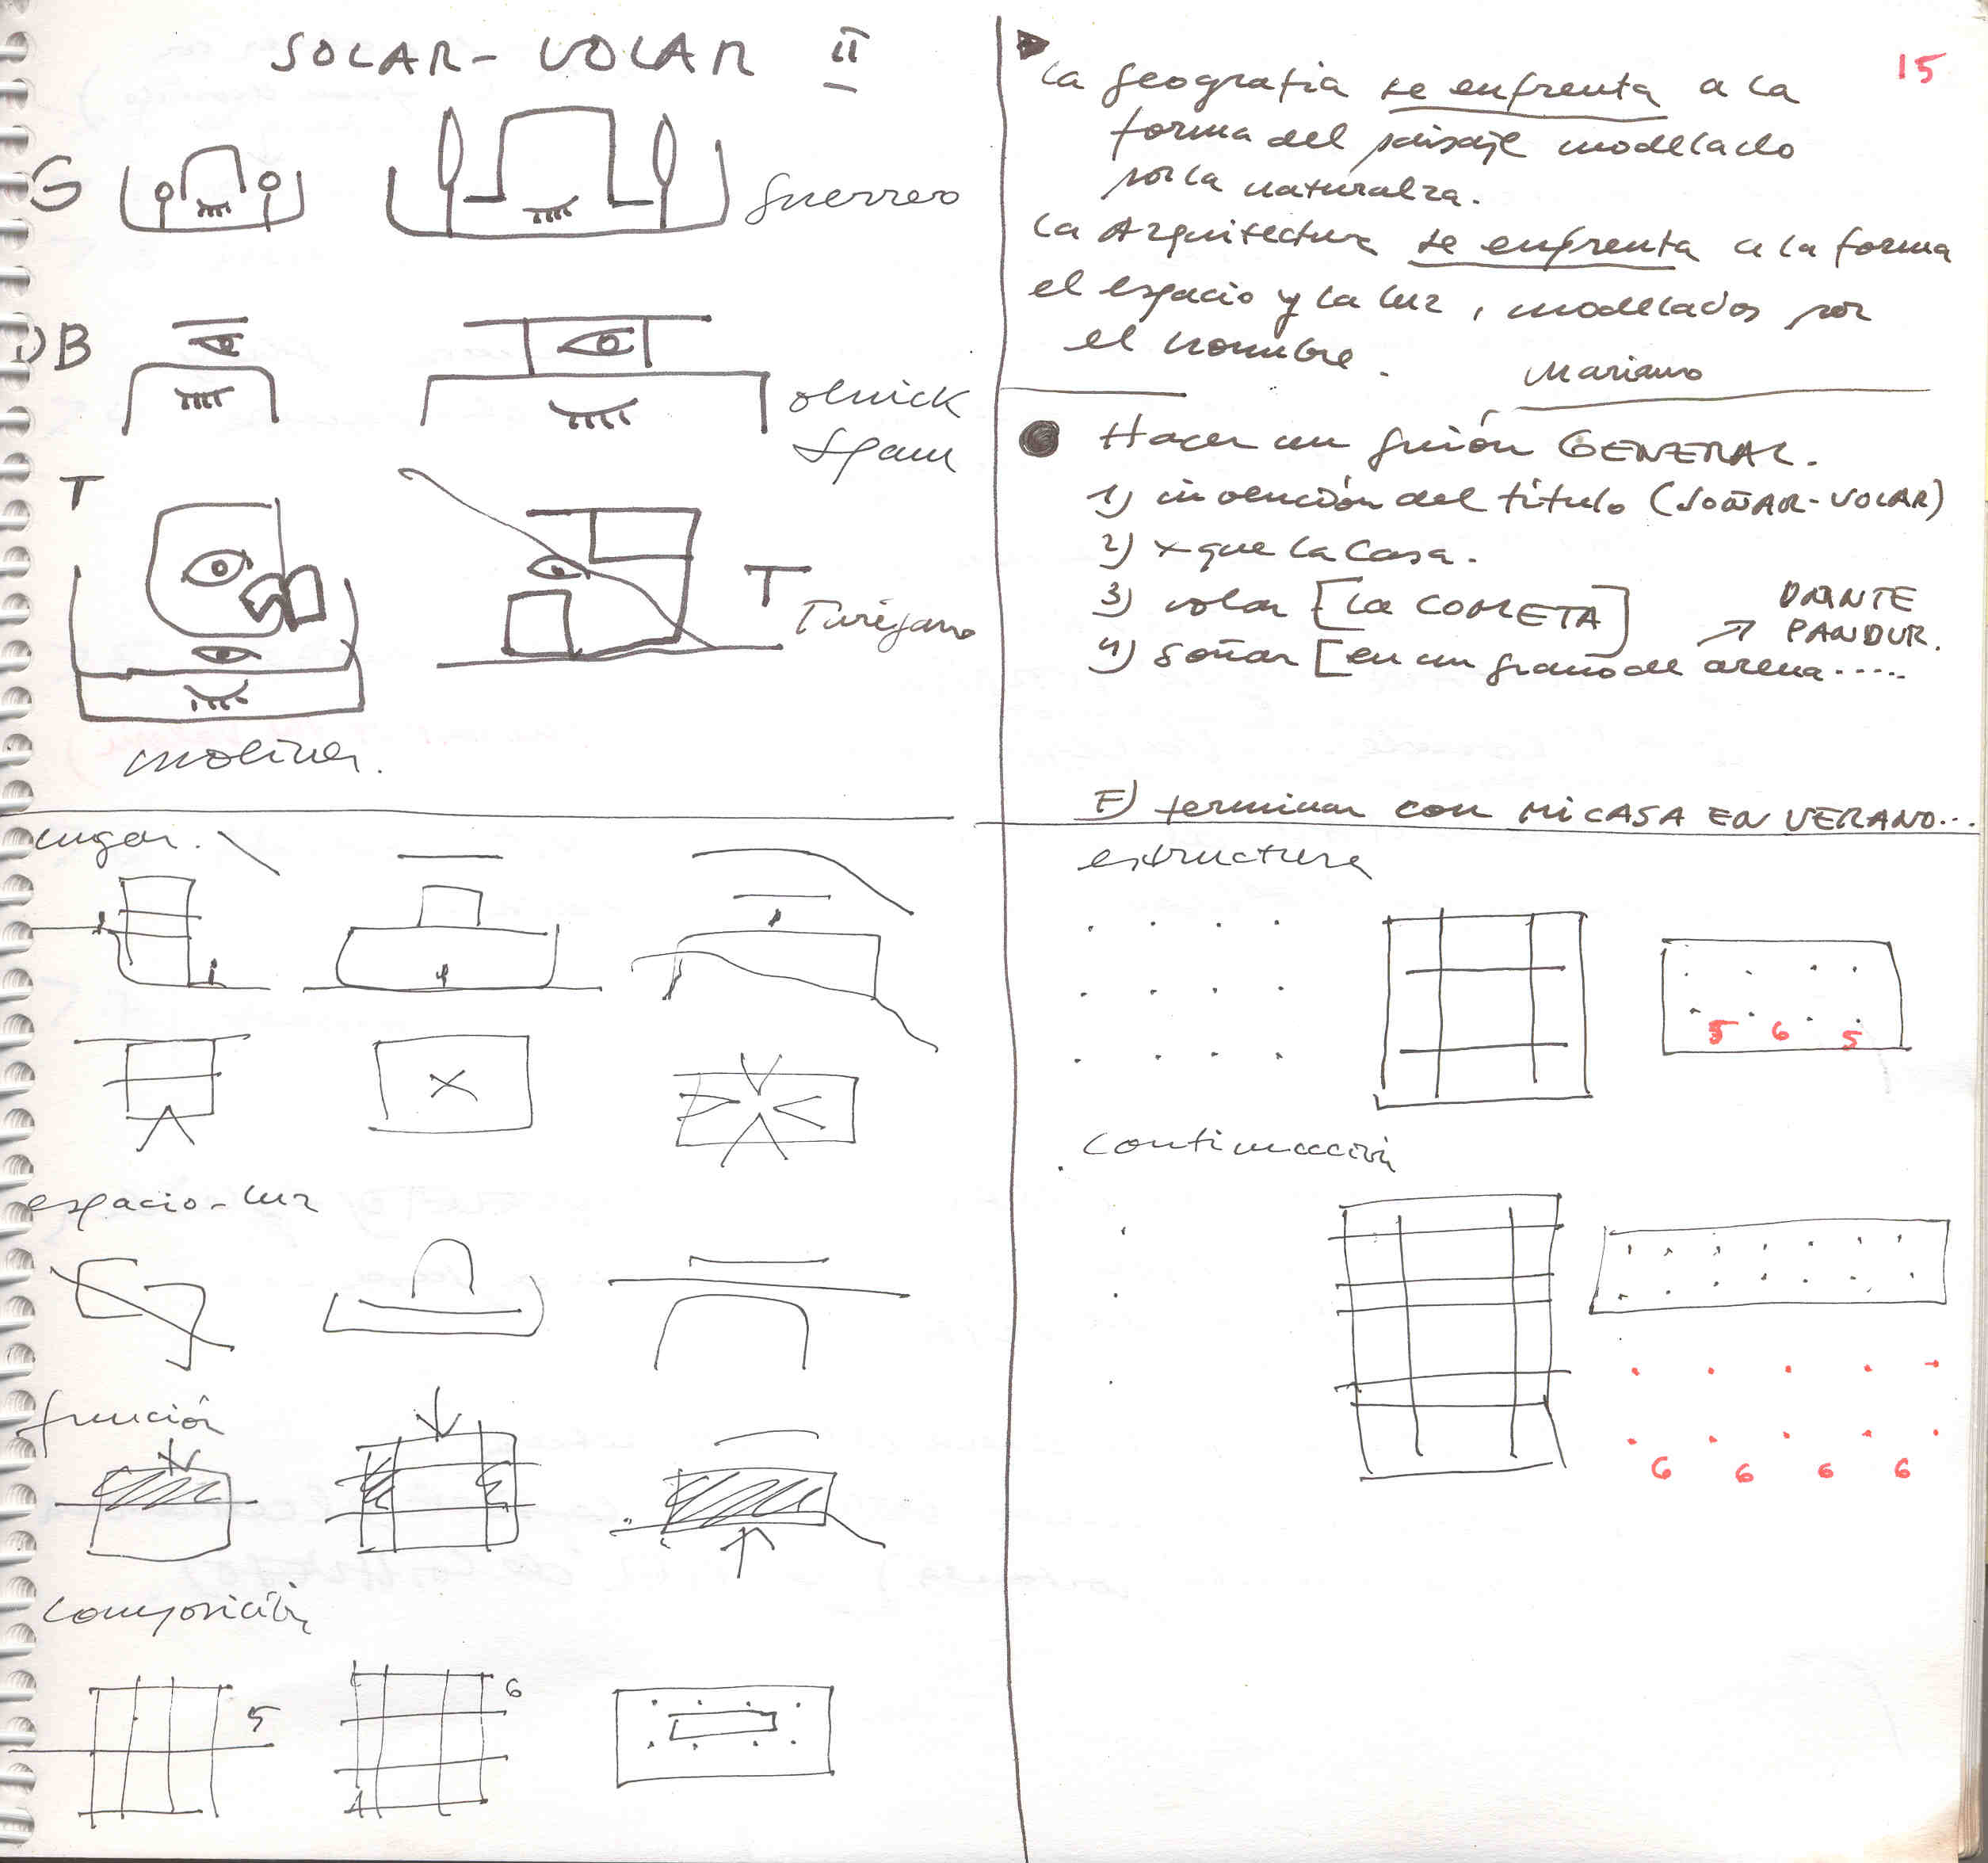 SOLAR - VOLAR II
G
guerrero
DB
olnick
Spanu
T
T
Turégano
moliner.
lugar.
espacio-luz
función
composición
5
6
15
La geografia se enfrenta a la
forma del paisaje modelado
por la naturalza.
La Arquitectura se enfrenta a la forma
el espacio y la luz, modelados por
el hombre.
Mariano
Hacer un guión GENERAL.
1) invención del título (SOÑAR-VOLAR)
2) x que la Casa.
3) volar [La COMETA]
DANTE
PANDUR.
4) soñar [en un grano de arena.....
F) terminar con MI CASA EN VERANO...
estructura
5 6 5
continuación
6 6 6 6